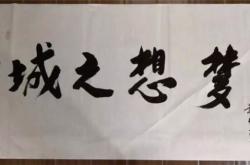 梦想之城